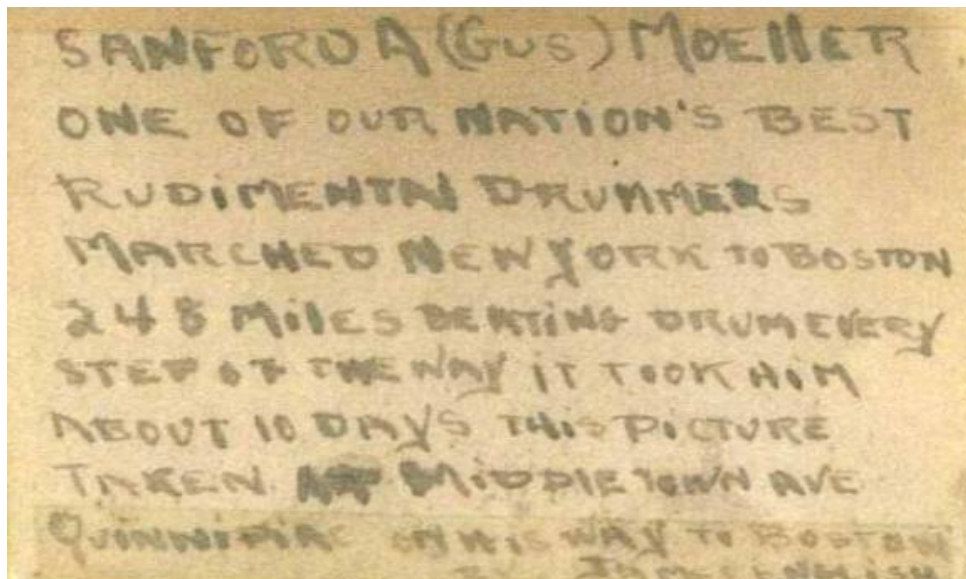 SANFORD A (GUS) MOELLER
ONE OF OUR NATION'S BEST
RUDIMENTAL DRUMMERS
MARCHED NEW YORK TO BOSTON
248 MILES BEATING DRUM EVERY
STEP OF THE WAY IT TOOK HIM
ABOUT 10 DAYS THIS PICTURE
TAKEN AT MIDDLETOWN AVE
QUINNIPIAC ON HIS WAY TO BOSTON
BY JAMES ENGLISH